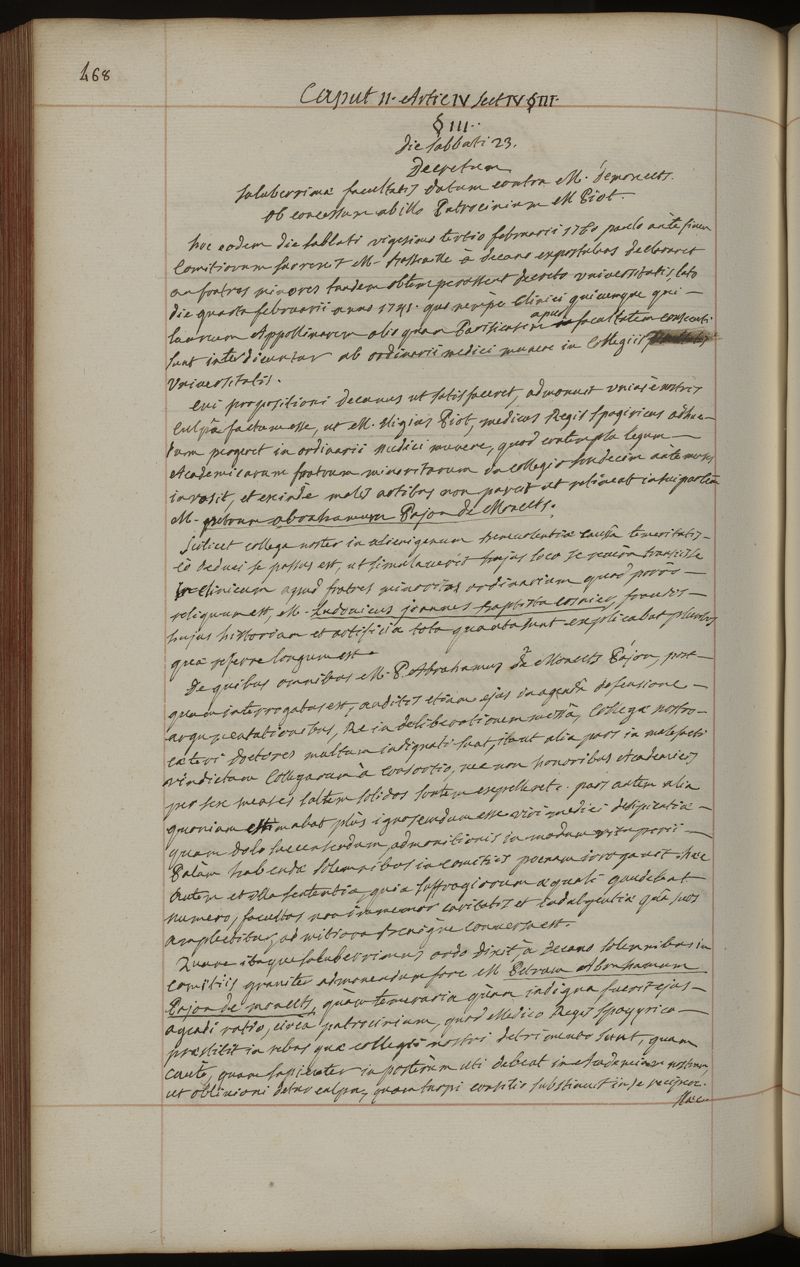 468
Caput II. Artic IV Sect IV § III.
§ III.
die sabbati 23.
Decretum
saluberrimæ facultatis datum contra M. demoncets.
ob concessum ab illo Patrocinium M Piot.
hoc eodem die sabbati vigesimo tertio februarii 1780 paulo ante finem
Comitiorum M. à decano expostulans declararet
an fratres minores tandem obtemperassent decreto universitatis, lato
die quarta februarii anno 1741. quo nempe Clinici quicumque qui
lauream Appollinarem alio quam Parisiensem apud facultatem consecuti
sunt interdicuntur ab ordinarii medici munere in Collegiis
Universitatis.
Cui propositioni decanus ut satisfaceret, admonuit unius è nostris
culpâ factum esse, ut M. Eligius Piot, medicus Regis spagiricus adhuc
dum pergeret in ordinarii medici munere, quod contempta legum
Academicarum fratrum minoritarum in collegio undecim ante menses
invasit, et exinde malis artibus non parcit ut retineat in sui partem
M. petrum abrahamum Pajon de Moncets.
Scilicet collega noster in alienigenam benevolentiæ causâ temeritatis
eò deduci se passus est, ut simulaverit hujus loco se
clinicum apud fratres minoritas ordinarium quod porrò
reliquum est, M. Ludovicus joannes baptista cosnier, fraudis
hujus historiam et artificia tota quanta sunt explicabat pluribus
quæ referre longum est.
De quibus omnibus M. P. Abrahamus De Moncets Pajon, post
quam interrogatus est, auditis etiam ejus in agenda defensione
argumentationibus, Re in deliberationem missâ, Collegæ nostro
cæteri doctores multum indignati sunt, ita ut alia pars in malefacti
vindictam Collegarum à consortio, nec non honoribus Academicis
per sex menses saltem solidos sontem expelleret. pars autem alia
quoniam estimabat plus ignoscendum esse viri medici
quam dolo succensendum, admonitionis in modum vituperii
Palam habendæ solemnibus in comitiis pœnam irrogavit. hæc
autem et illa sententia, quia suffragiorum æquali gaudebat
numero, facultas non immemor caritatis et indulgentiæ quâ suos
amplectitur, ad mitiora benigne conversa est.
Quare itaque saluberrimus ordo dixit, à decano solemnibus in
comitiis graviter admonendum fore M Petrum Abrahamum
Pajon de moncets, quàm temeraria quàm indigna fuerit ejus
agendi ratio, circa patrocinium, quod Medico Regis spagyrico
præstitit in rebus quæ collegii nostri detrimento sunt, quam
cautè, quam sapienter in posterum uti debeat in Academicum nostrum,
ut oblivioni detur culpa, quam turpi consilio sustinuit in se recipere.
Hæc